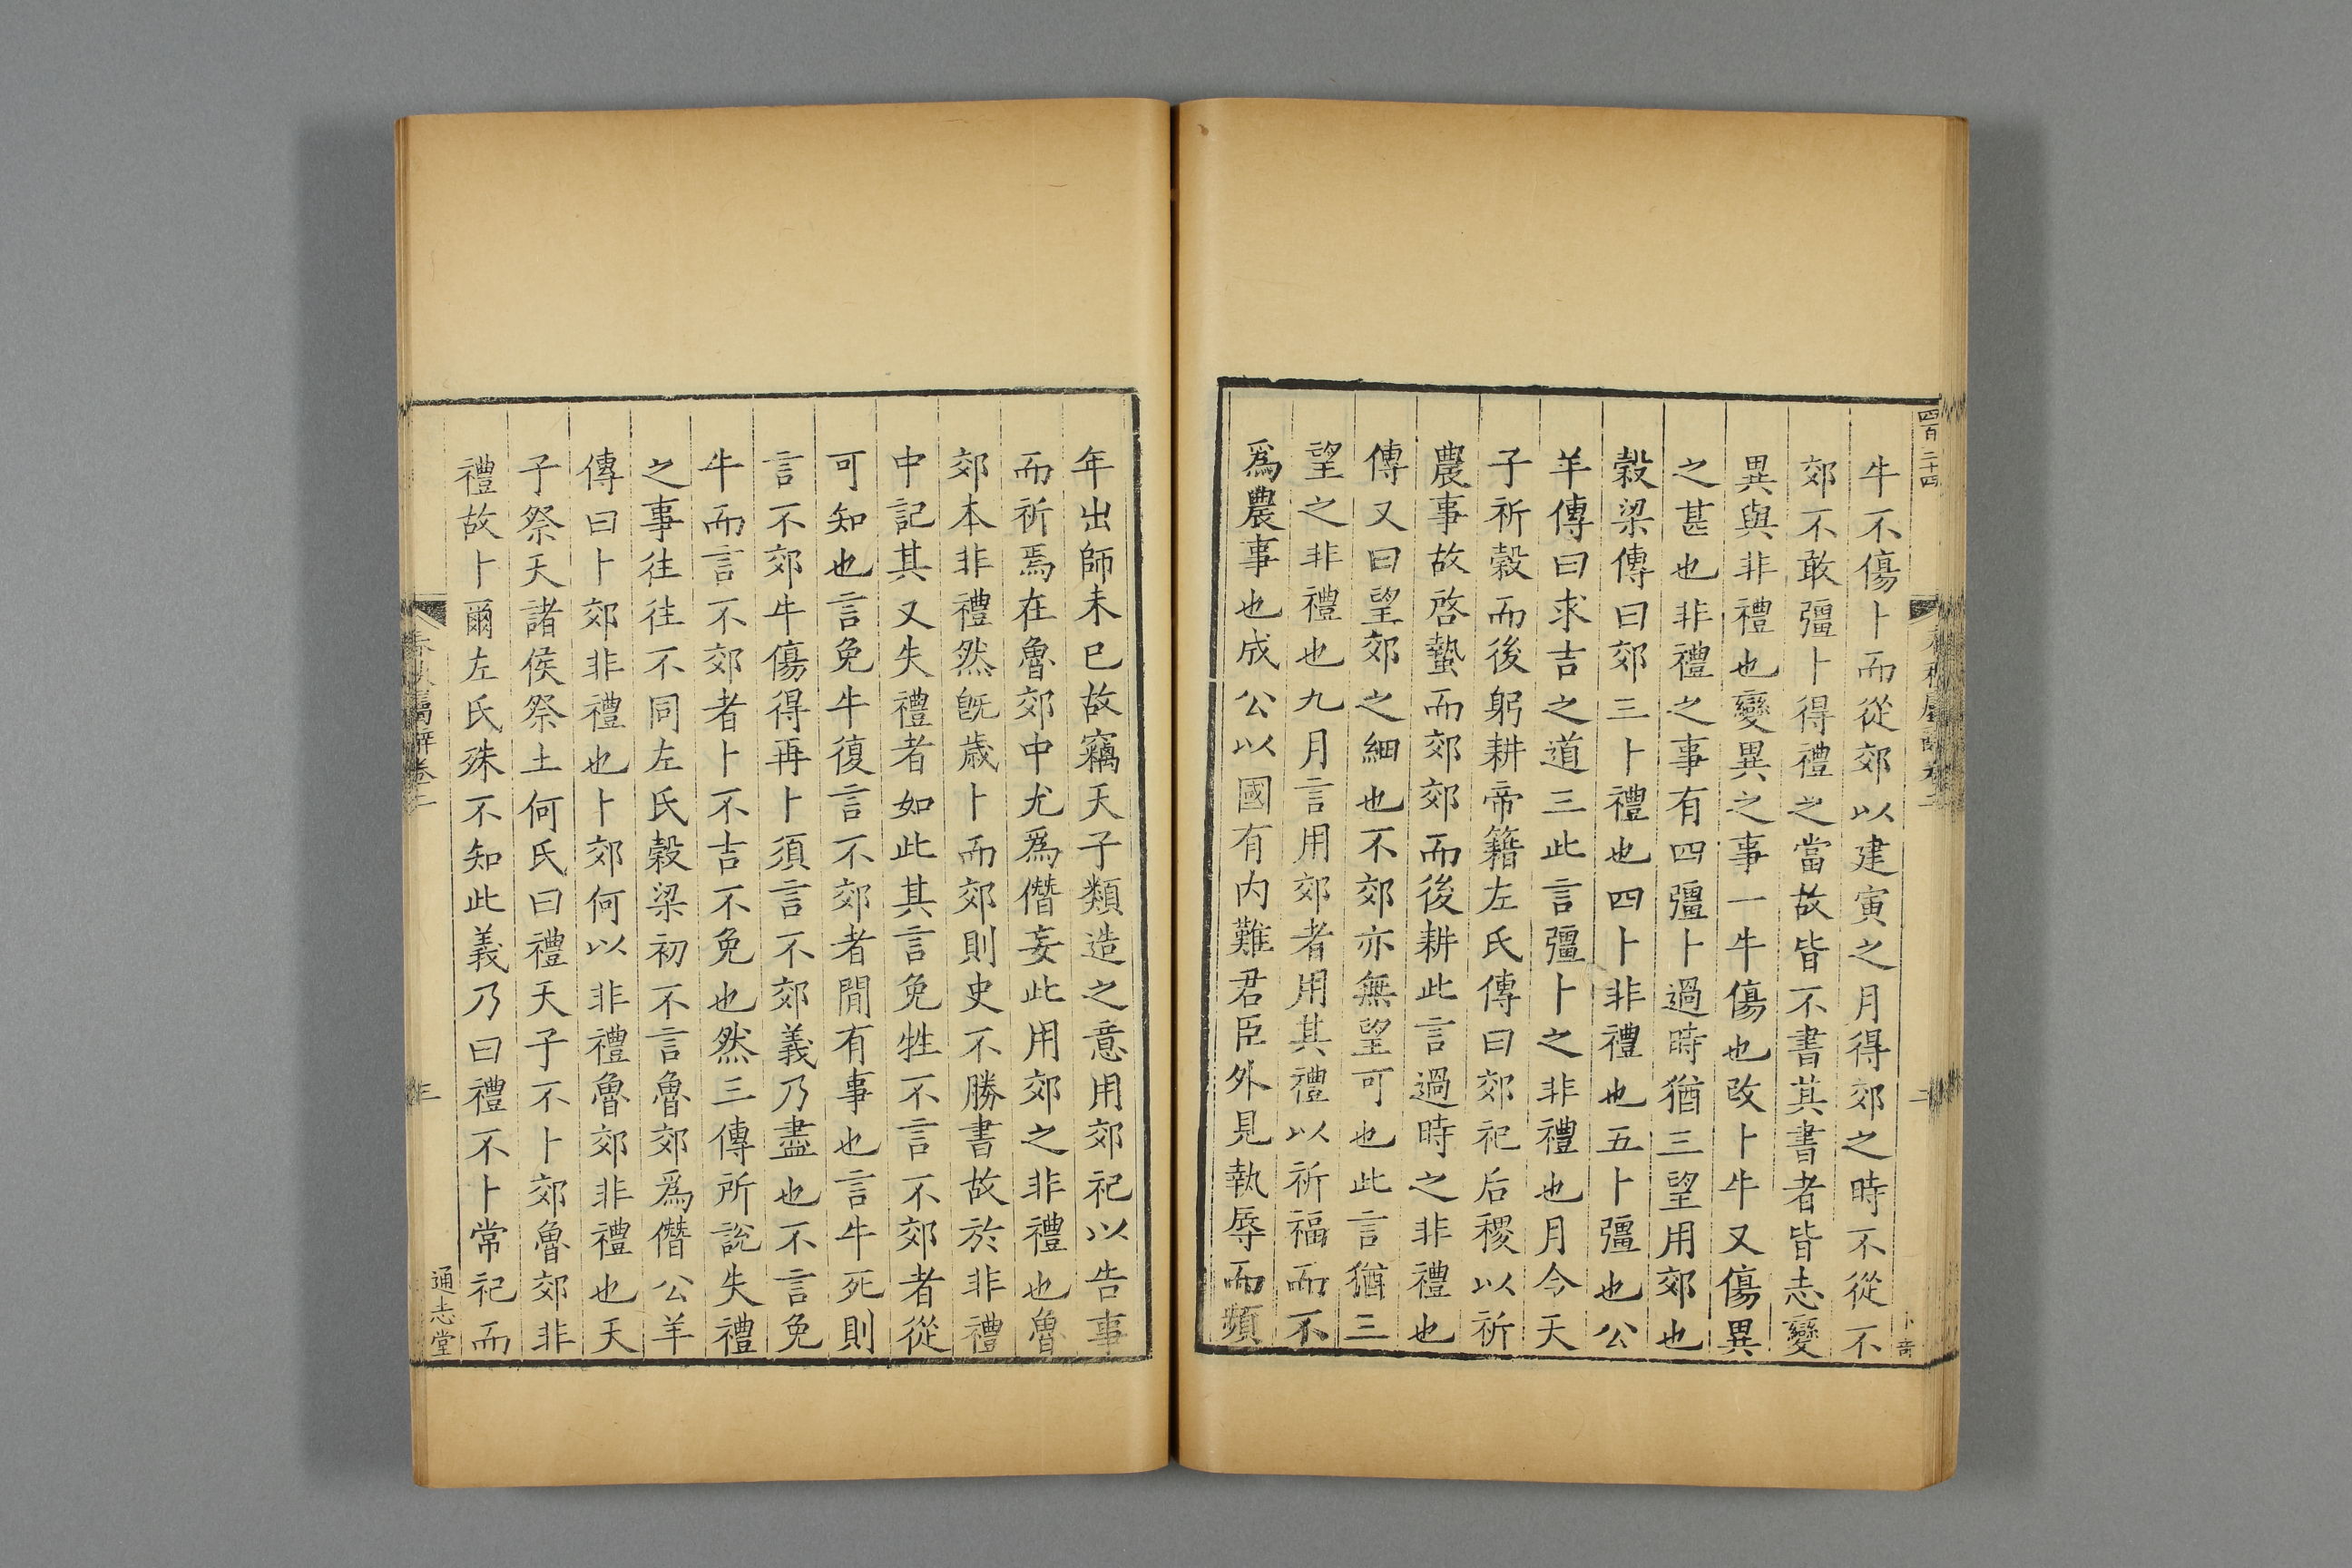 四百二十四
牛不傷卜而從郊以建寅之月得郊之時不從不
郊不敢彊卜得禮之當故皆不書其書者皆志變
異與非禮也變異之事一牛傷也改卜牛又傷異
之甚也非禮之事有四彊卜過時猶三望用郊也
穀梁傳曰郊三卜禮也四卜非禮也五卜彊也公
羊傳曰求吉之道三此言彊卜之非禮也月今天
子祈穀而後躬耕帝籍左氏傳曰郊祀后稷以祈
農事故啓蟄而郊郊而後耕此言過時之非禮也
傳又曰望郊之細也不郊亦無望可也此言猶三
望之非禮也九月言用郊者用其禮以祈福而不
爲農事也成公以國有内難君臣外見執辱而頻
年出師未已故竊天子類造之意用郊祀以告事
而祈焉在魯郊中尤爲僭妄此用郊之非禮也魯
郊本非禮然旣歳卜而郊則史不勝書故於非禮
中記其又失禮者如此其言免牲不言不郊者從
可知也言免牛復言不郊者閒有事也言牛死則
言不郊牛傷得再卜須言不郊義乃盡也不言免
牛而言不郊者卜不吉不免也然三傳所說失禮
之事往往不同左氏穀梁初不言魯郊爲僭公羊
傳曰卜郊非禮也卜郊何以非禮魯郊非禮也天
子祭天諸侯祭土何氏曰禮天子不卜郊魯郊非
禮故卜爾左氏殊不知此義乃曰禮不卜常祀而
通志堂